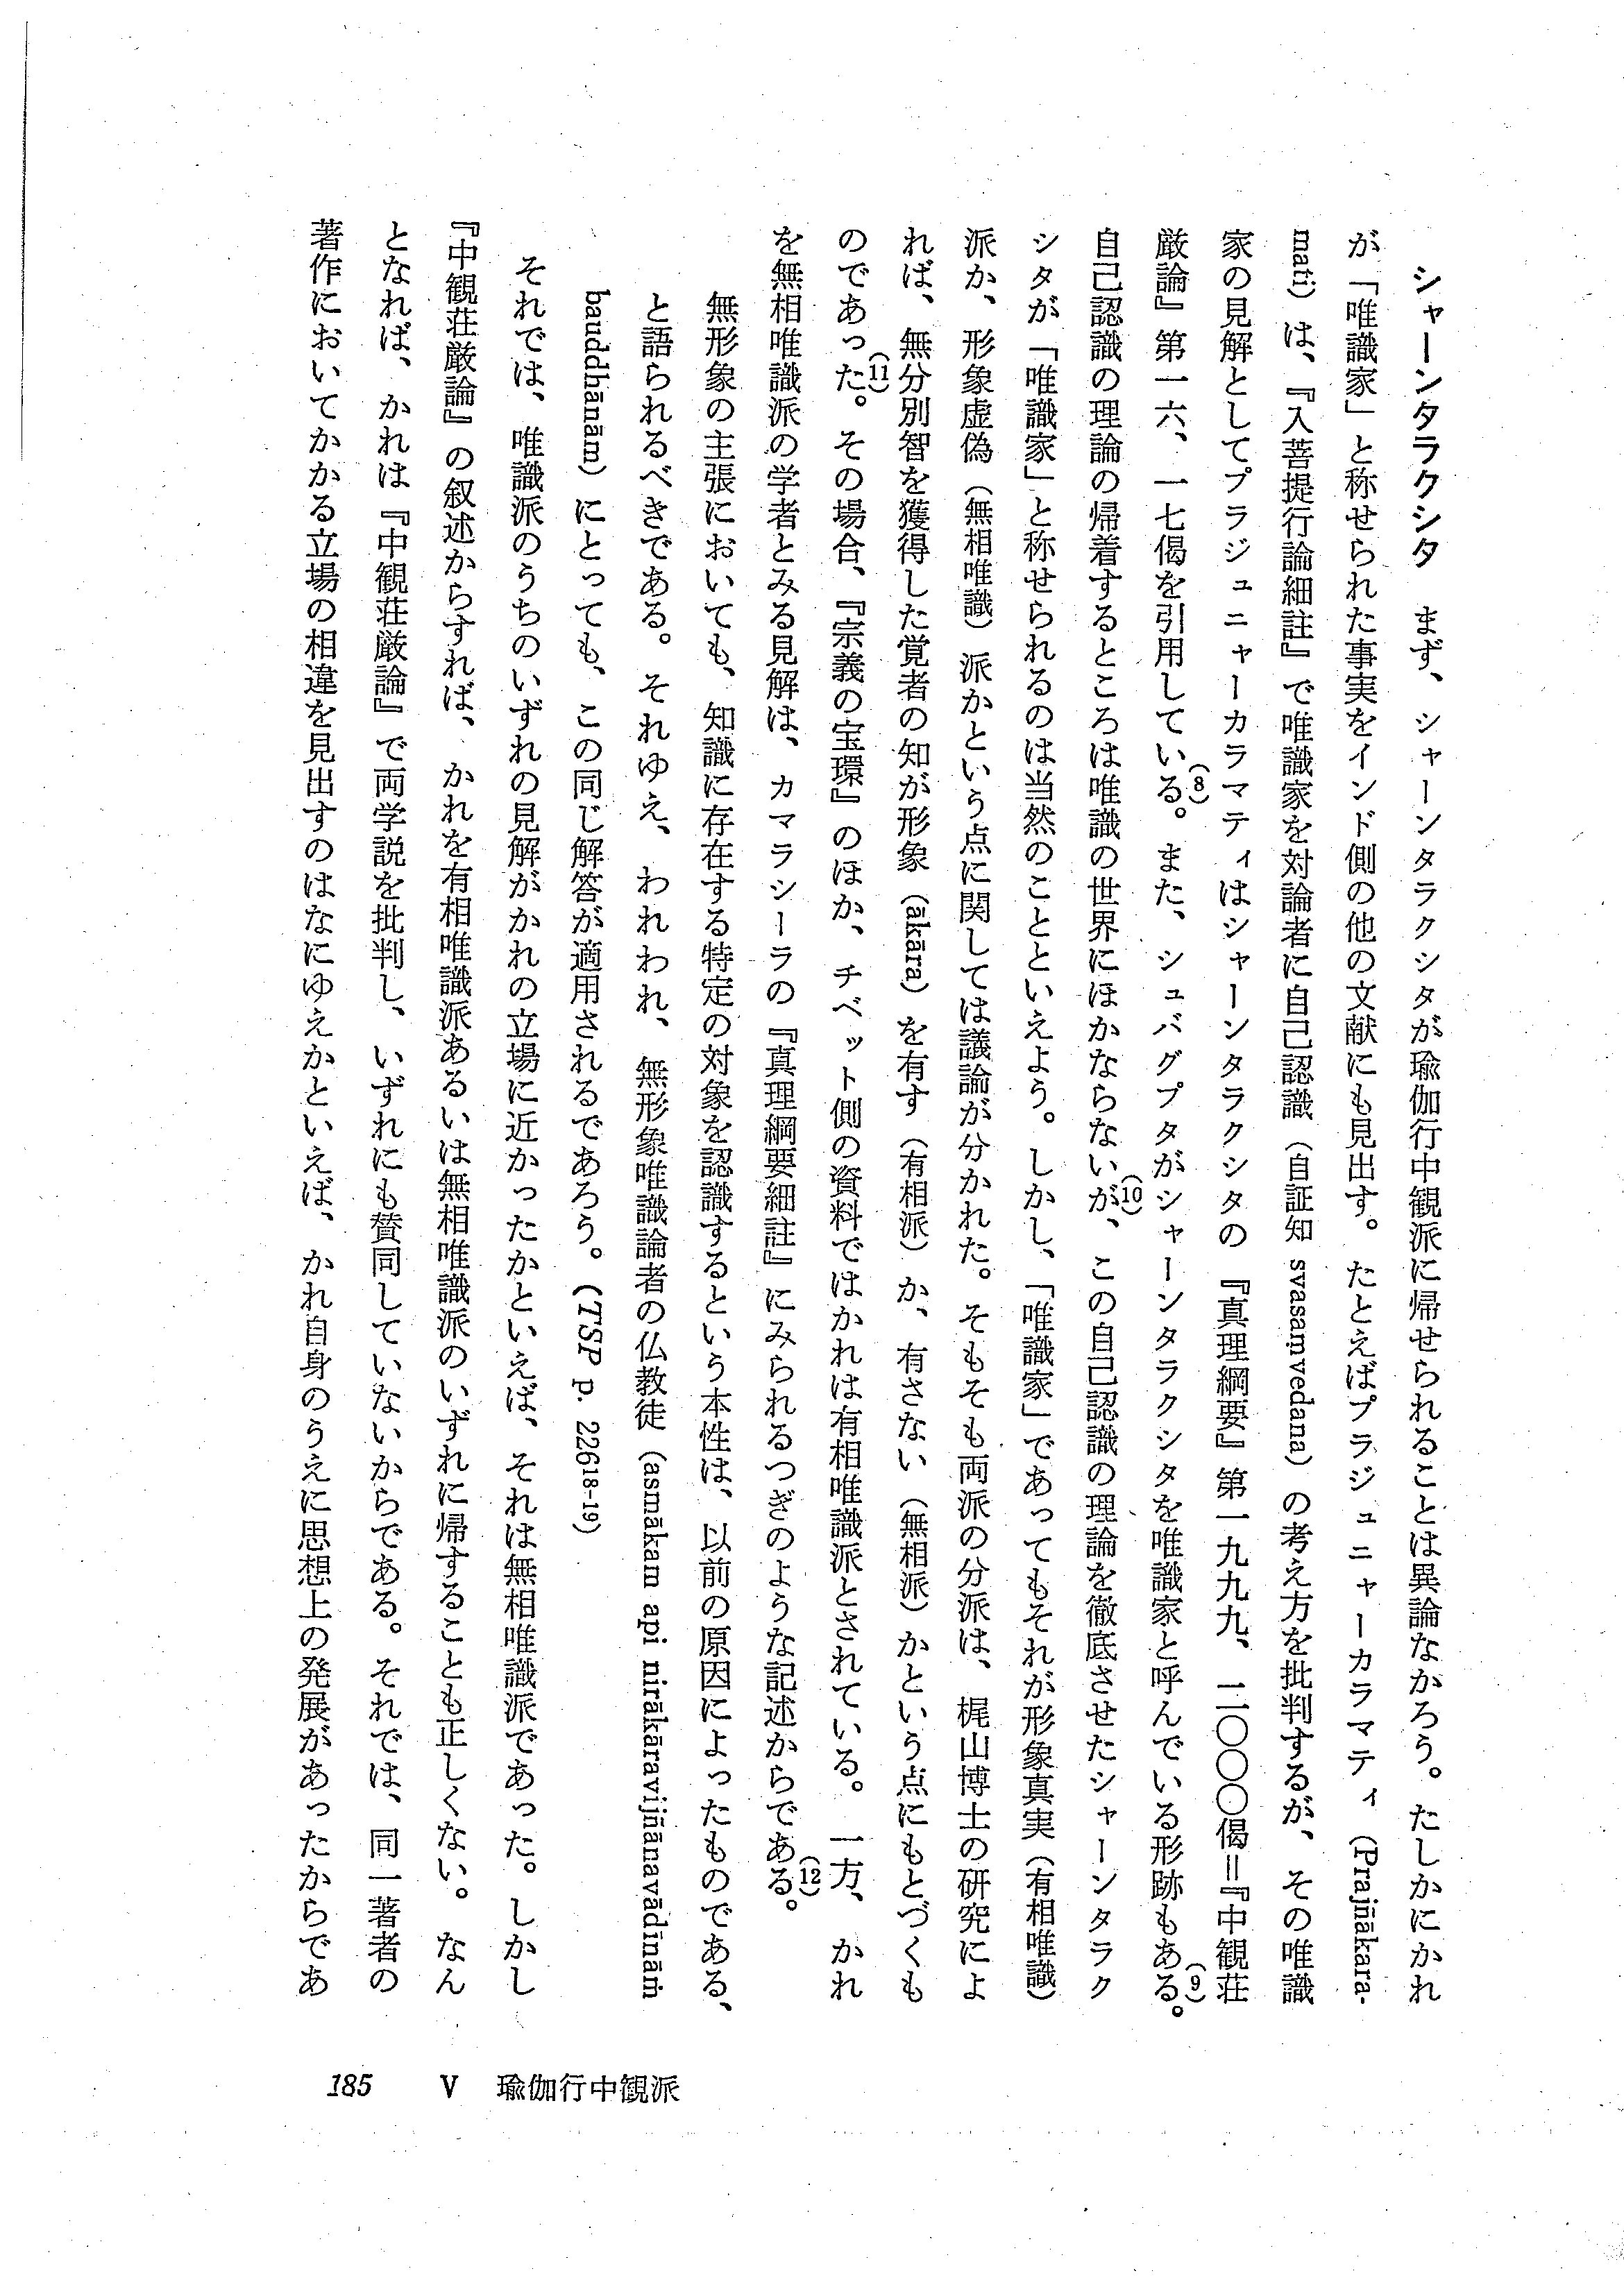 シャーンタラクシタ　まず、シャーンタラクシタが瑜伽行中観派に帰せられることは異論なかろう。たしかにかれ
が「唯識家」と称せられた事実をインド側の他の文献にも見出す。たとえばプラジュニャーカラマティ（Prajñākara-
mati）は、『入菩提行論細註』で唯識家を対論者に自己認識（自証知 svasaṃvedana）の考え方を批判するが、その唯識
家の見解としてプラジュニャーカラマティはシャーンタラクシタの『真理綱要』第一九九九、二〇〇〇偈＝『中観荘
厳論』第一六、一七偈を引用している(8)。また、シュバグプタがシャーンタラクシタを唯識家と呼んでいる形跡もある(9)。
自己認識の理論の帰着するところは唯識の世界にほかならないが(10)、この自己認識の理論を徹底させたシャーンタラク
シタが「唯識家」と称せられるのは当然のことといえよう。しかし、「唯識家」であってもそれが形象真実（有相唯識）
派か、形象虚偽（無相唯識）派かという点に関しては議論が分かれた。そもそも両派の分派は、梶山博士の研究によ
れば、無分別智を獲得した覚者の知が形象（ākāra）を有す（有相派）か、有さない（無相派）かという点にもとづくも
のであった(11)。その場合、『宗義の宝環』のほか、チベット側の資料ではかれは有相唯識派とされている。一方、かれ
を無相唯識派の学者とみる見解は、カマラシーラの『真理綱要細註』にみられるつぎのような記述からである(12)。
無形象の主張においても、知識に存在する特定の対象を認識するという本性は、以前の原因によったものである、
と語られるべきである。それゆえ、われわれ、無形象唯識論者の仏教徒（asmākam api nirākāravijñānavādināṁ
bauddhānām）にとっても、この同じ解答が適用されるであろう。(TSP p. 226 18-19)
それでは、唯識派のうちのいずれの見解がかれの立場に近かったかといえば、それは無相唯識派であった。しかし
『中観荘厳論』の叙述からすれば、かれを有相唯識派あるいは無相唯識派のいずれに帰することも正しくない。なん
となれば、かれは『中観荘厳論』で両学説を批判し、いずれにも賛同していないからである。それでは、同一著者の
著作においてかかる立場の相違を見出すのはなにゆえかといえば、かれ自身のうえに思想上の発展があったからであ
185　V　瑜伽行中観派